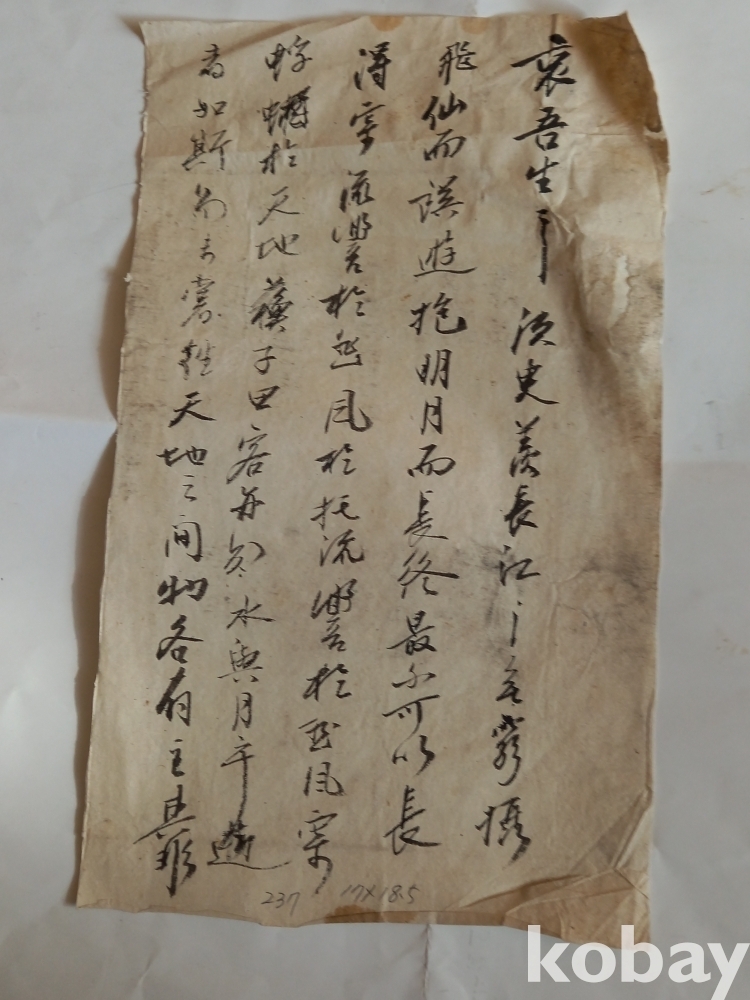 哀吾生之須臾羨長江之無窮挾
飛仙而遊抱明月而長終最不可以長
得寄流響於悲風於托流響於悲風寄
蜉於天地蘇子曰客亦知水與月乎逝
者如斯而未嘗往天地之間物各有主
237 17×18.5
kobay